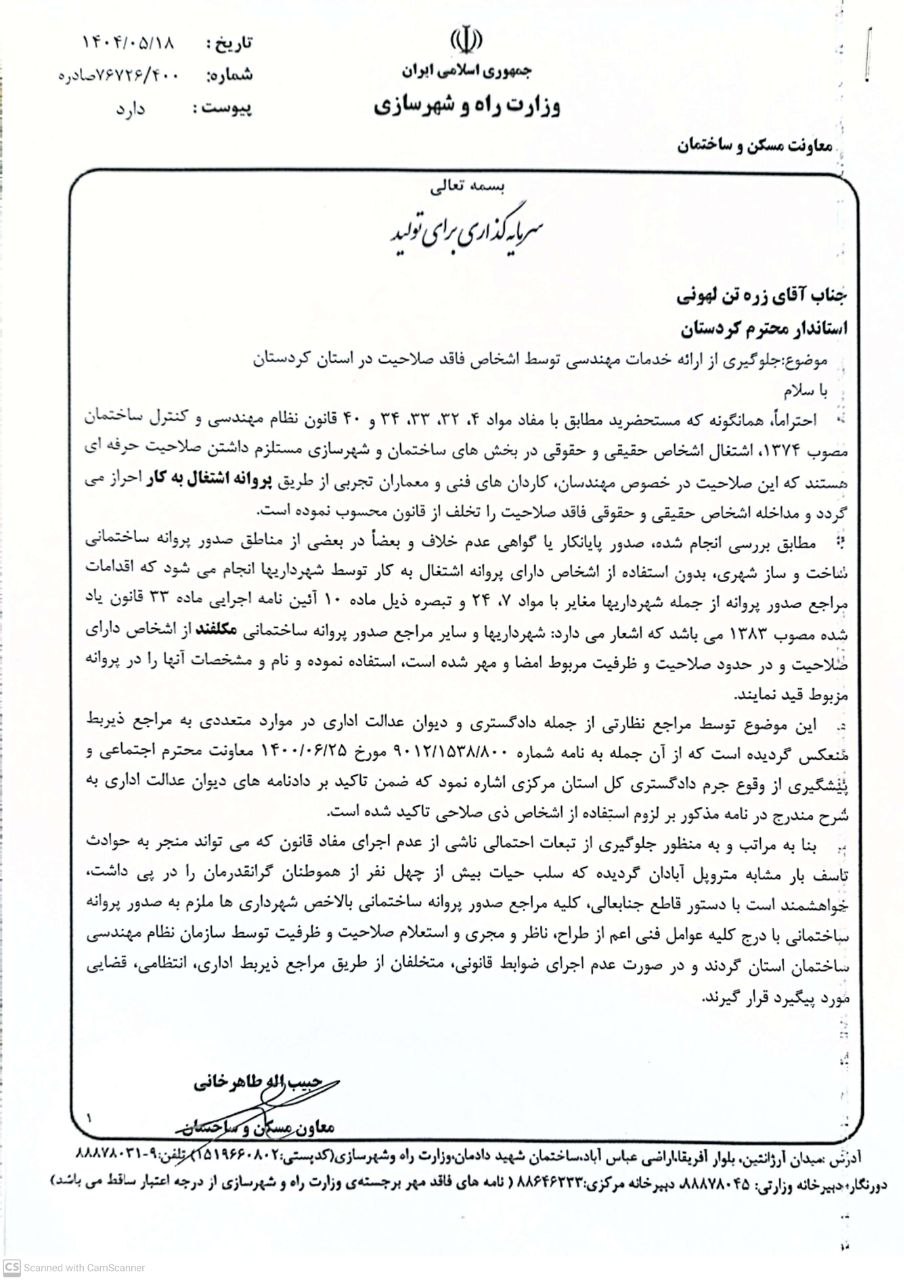 جمهوری اسلامی ایران
وزارت راه و شهرسازی
تاریخ : ۱۴۰۴/۰۵/۱۸
شماره: ۷۶۷۲۶/۴۰۰صادره
پیوست : دارد
معاونت مسکن و ساختمان
بسمه تعالی
سرمایه گذاری برای تولید
جناب آقای زره تن لهونی
استاندار محترم کردستان
موضوع:جلوگیری از ارائه خدمات مهندسی توسط اشخاص فاقد صلاحیت در استان کردستان
با سلام
احتراماً، همانگونه که مستحضرید مطابق با مفاد مواد ۴، ۳۲، ۳۳، ۳۴ و ۴۰ قانون نظام مهندسی و کنترل ساختمان
مصوب ۱۳۷۴، اشتغال اشخاص حقیقی و حقوقی در بخش های ساختمان و شهرسازی مستلزم داشتن صلاحیت حرفه ای
هستند که این صلاحیت در خصوص مهندسان، کاردان های فنی و معماران تجربی از طریق پروانه اشتغال به کار احراز می
گردد و مداخله اشخاص حقیقی و حقوقی فاقد صلاحیت را تخلف از قانون محسوب نموده است.
مطابق بررسی انجام شده، صدور پایانکار یا گواهی عدم خلاف و بعضاً در بعضی از مناطق صدور پروانه ساختمانی
ساخت و ساز شهری، بدون استفاده از اشخاص دارای پروانه اشتغال به کار توسط شهرداریها انجام می شود که اقدامات
مراجع صدور پروانه از جمله شهرداریها مغایر با مواد ۷، ۲۴ و تبصره ذیل ماده ۱۰ آئین نامه اجرایی ماده ۳۳ قانون یاد
شده مصوب ۱۳۸۳ می باشد که اشعار می دارد: شهرداریها و سایر مراجع صدور پروانه ساختمانی مکلفند از اشخاص دارای
صلاحیت و در حدود صلاحیت و ظرفیت مربوط امضا و مهر شده است، استفاده نموده و نام و مشخصات آنها را در پروانه
مزبوط قید نمایند.
این موضوع توسط مراجع نظارتی از جمله دادگستری و دیوان عدالت اداری در موارد متعددی به مراجع ذیربط
منعکس گردیده است که از آن جمله به نامه شماره ۹۰۱۲/۱۵۳۸/۸۰۰ مورخ ۱۴۰۰/۰۶/۲۵ معاونت محترم اجتماعی و
پیشگیری از وقوع جرم دادگستری کل استان مرکزی اشاره نمود که ضمن تاکید بر دادنامه های دیوان عدالت اداری به
شرح مندرج در نامه مذکور بر لزوم استفاده از اشخاص ذی صلاحی تاکید شده است.
بنا به مراتب و به منظور جلوگیری از تبعات احتمالی ناشی از عدم اجرای مفاد قانون که می تواند منجر به حوادث
تاسف بار مشابه متروپل آبادان گردیده که سلب حیات بیش از چهل نفر از هموطنان گرانقدرمان را در پی داشت،
خواهشمند است با دستور قاطع جنابعالی، کلیه مراجع صدور پروانه ساختمانی بالاخص شهرداری ها ملزم به صدور پروانه
ساختمانی با درج کلیه عوامل فنی اعم از طراح، ناظر و مجری و استعلام صلاحیت و ظرفیت توسط سازمان نظام مهندسی
ساختمان استان گردند و در صورت عدم اجرای ضوابط قانونی، متخلفان از طریق مراجع ذیربط اداری، انتظامی، قضایی
مورد پیگیرد قرار گیرند.
حبیب اله طاهرخانی
معاون مسکن و ساختمان
۱
آدرس :میدان آرژانتین، بلوار آفریقا،اراضی عباس آباد،ساختمان شهید دادمان،وزارت راه وشهرسازی(کدپستی:۱۵۱۹۶۶۰۸۰۲) تلفن:۹-۸۸۸۷۸۰۳۱
دورنگار: دبیرخانه وزارتی: ۸۸۸۷۸۰۴۵، دبیرخانه مرکزی:۸۸۶۴۶۲۳۳ ( نامه های فاقد مهر برجسته‌ی وزارت راه و شهرسازی از درجه اعتبار ساقط می باشد)
CS Scanned with CamScanner